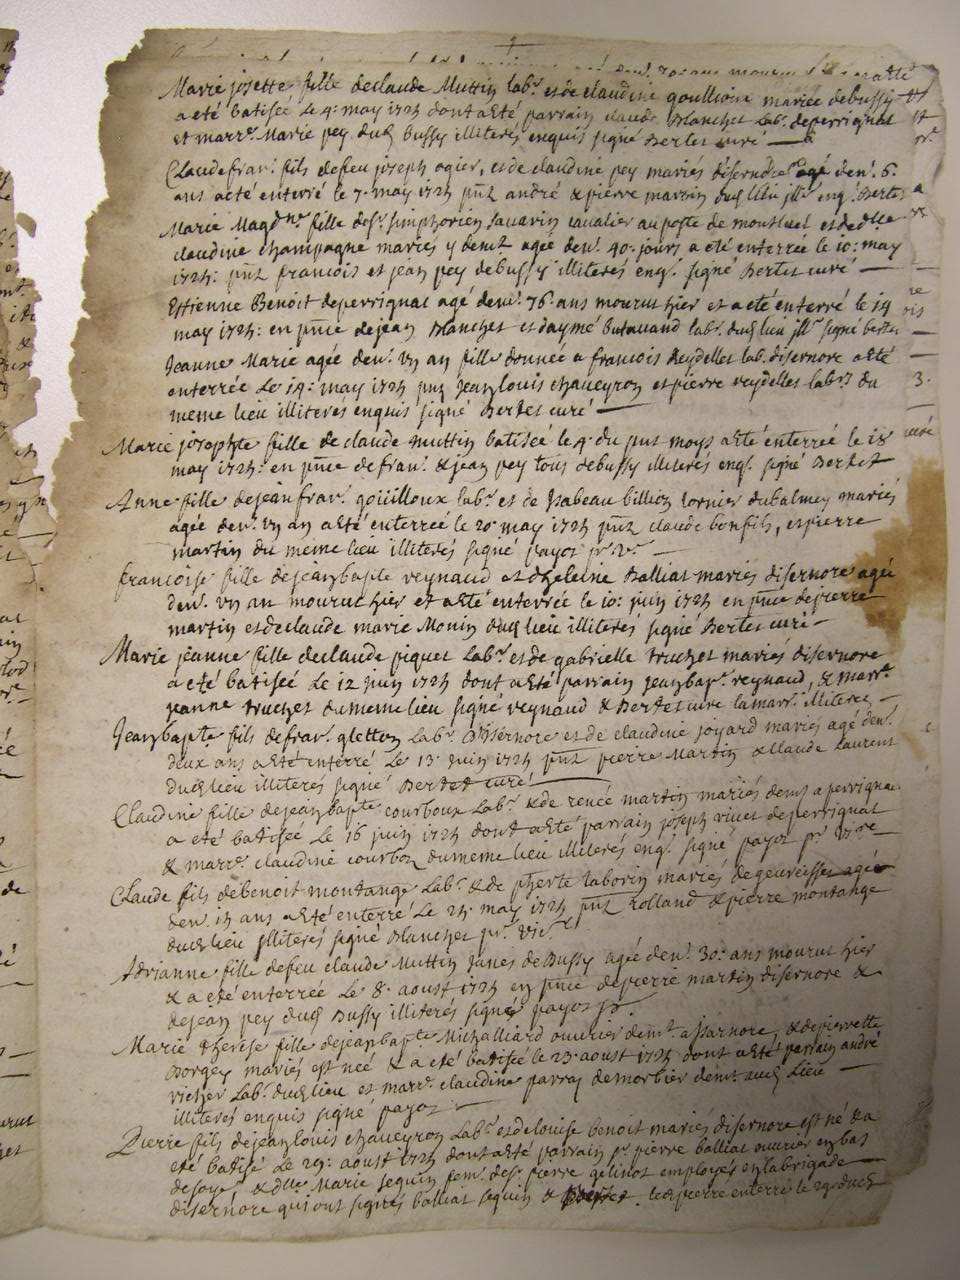 Marie josette fille declaude Muttin labr. et de claudine goullioux mariée debussy
a eté batisée le 4e may 1725 dont a eté parrain claude Blanchet labr. deperrignat
et marre. Marie pey dud. bussy illiterés enquis signé Bertet curé
Claude fran. fils defeu joseph ogier, et de claudine pey mariés disernore agé denv. 6.
ans a eté enterré le 7e may 1725 pnt andré & pierre martin dud. lieu jllit. enq. Bertet
Marie Magdne. fille desr. simphorien savarin cavalier au poste de montluel et de dlle.
claudine champagne mariés y demt. agée denv. 40. jours a eté enterrée le 10: may
1725: pnt francois et jean pey debussy illiterés enq. signé Bertet curé
Estienne Benoit deperrignat agé denv. 76. ans mourut hier et a eté enterré le 14
may 1725: en pnce dejean Blanchet et daymé butavand labr. dud. lieu jllr. signé bertet
Jeanne Marie agée denv. un an fille donnée a francois Reydellet lab. disernore a eté
enterrée le 14: may 1725 pnt Jean louis chaveyron et pierre reydellet labrs. du
meme lieu illiteres enquis signé Bertet curé
Marie josephte fille de claude muttin batisée le 4e du pnt moys a eté enterrée le 18
may 1725: en pnce de fran. & jean pey tous debussy illiterés enq. signé Bertet
Anne fille dejean fran. goüilloux labr. et de jsabeau billion tornier dubalmey mariés
agée denv. un an a eté enterrée le 20e may 1725 pnt claude bonfils, et pierre
martin du meme lieu illiterés signé payot pr. v.
francoise fille dejean bapte reynaud et dheleine Balliat mariés disernore agée
denv. un an mourut hier et a eté enterrée le 10: juin 1725 en pnce depierre
martin et declaude marie Monin dud. lieu illiterés signé Bertet curé
Marie jeanne fille declaude piquet labr. et de gabrielle truchet mariés disernore
a eté batisée le 12 juin 1725 dont a eté parrain jean bap. reynaud, & marr.
jeanne truchet dumeme lieu signé reynaud & Bertet curé la marr. illiterée
Jean bapte fils de fran. gletton labr. disernore et de claudine joyard mariés agé denv.
deux ans a eté enterré le 13e juin 1725 pnt pierre Martin & claude laurent
dud. lieu illiterés signé Bertet curé
Claudine fille dejean bapte courboux labr. & de renée martin mariés demt. a perrignat
a eté batisée le 16 juin 1725 dont a eté parrain joseph vivet deperrignat
& marre. claudine courbox du meme lieu illiterés enq. signé payot pr. vire.
Claude fils debenoit montange labr. & de pherte laborin mariés de geovreisset agé
denv. 15 ans a eté enterré le 25. may 1725 pnt Rolland & pierre montange
dud. lieu jlliterés signé Blanchet pr. vic.
Adrianne fille defeu claude Muttin Janes de Bussy agée denv. 30: ans mourut hier
& a eté enterrée le 8. aoust 1725 en pnce depierre martin disernore &
dejean pey dud. Bussy illiterés signé payot p.
Marie therese fille dejean bapte Michalliard ouvrier demt. a jsarnore, & depierrette
Borgey mariés est née & a eté batisée le 23e aoust 1725 dont a eté parrain andré
richer labr. dud. lieu et marr. claudine parra demorbier demt. aud. lieu
illiterés enquis signé payot
Pierre fils dejean louis chaveyron labr. et de louise benoit mariés disernore est né & a
eté batisé le 29: aoust 1725 dont a eté parrain sr. pierre balliat ouvrier en bas
desoye & dlle. Marie sequin fem. desr. pierre gelinot employés en la brigade
disernore qui ont signés balliat sequin & led. pierre enterré le 29e dud.